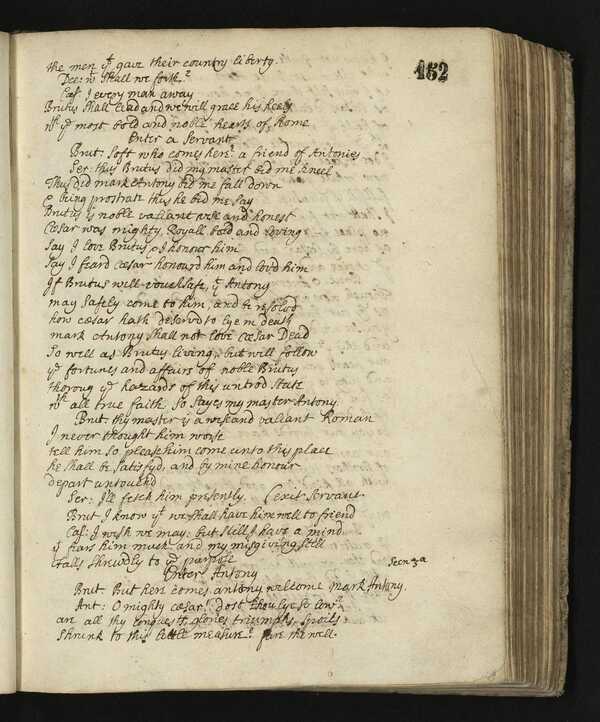 152
the men yt gave their country liberty.
Dec: wt shall we forth?
Cas: I every man away
Brutus shall lead and we will grace his heels
wth ye most bold and noble hearts of Rome
Enter a Servant
Brut: Soft who comes here? a friend of Antonies
Ser: thus Brutus did my master bid me kneel
Thus did mark Antony bid me fall down
& being prostrate thus he bid me say
Brutus is noble valiant wise and honest
Cæsar was mighty, Royall bold and Loving
Say I love Brutus & I honour him
Say I feard cæsar honourd him and lovd him
If Brutus will vouchsafe, yt Antony
may safely come to him, and be resolvd
how cæsar hath deservd to lye in death
mark Antony shall not love cæsar Dead
so well as Brutus living; but will follow
ye fortunes and affairs of noble Brutus
thoroug ye hazards of this untrod state
wth all true faith. So sayes my master Antony.
Brut: thy master is a wise and valiant Roman
I never thought him worse
tell him so please him come unto this place
he shall be satisfyd, and by mine honour
depart untouchd
Ser: I'll fetch him presently. (exit servant
Brut: I know yt we shall have him well to friend
Cas: I wish we may: but still I have a mind
yt fears him much and my misgiving still
Falls shrewdly to ye purpose
Enter Antony
Scen 3a
Brut: But here comes antony welcome mark Antony.
Ant: O mighty cæsar! dost thou lye so low?
are all thy conquests, glories triumphs, spoils
shrunk to this little measure? fare the well.